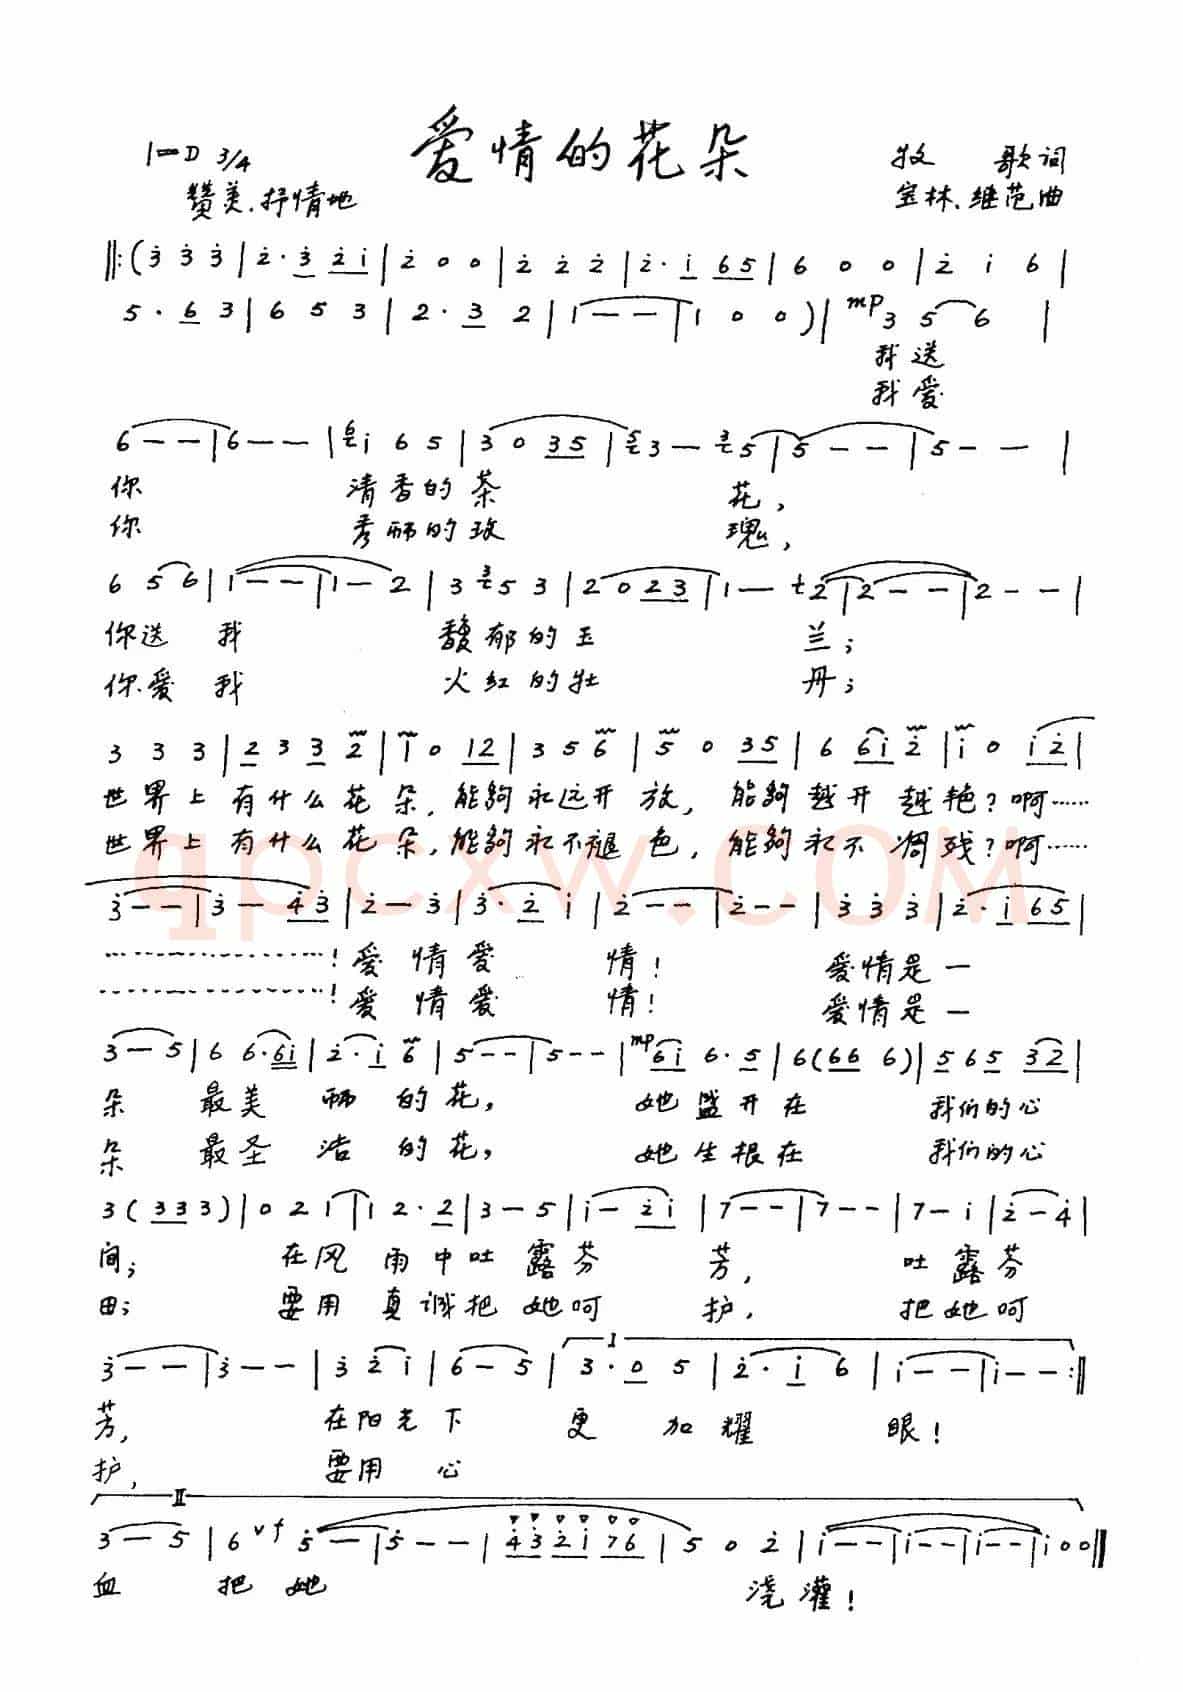 爱情的花朵
1=D 3/4
牧 歌词
赞美、抒情地
宝林、继范曲
‖:(3̇ 3̇ 3̇ | 2̇· 3̇ 2̇ i | 2̇ 0 0 | 2̇ 2̇ 2̇ | 2̇· i 6 5 | 6 0 0 | 2̇ i 6 |
5· 6 3 | 6 5 3 | 2· 3 2 | 1 - - | 1 0 0 ) | mp 3 5 6 |
我送
我爱
6 - - | 6 - - | i 6 5 | 3 0 3 5 | 3 - 5 | 5 - - | 5 - - |
你 清香的茶 花，
你 秀丽的玫 瑰，
6 5 6 | 1 - - | 1 - 2 | 3 5 3 | 2 0 2 3 | 1 - 2 | 2 - - | 2 - - |
你送 我 馥郁的玉 兰；
你爱 我 火红的牡 丹；
3 3 3 | 2 3 3 2 | 1 0 1 2 | 3 5 6 | 5 0 3 5 | 6 6 i 2̇ | i 0 i 2̇ |
世界上 有什么花 朵，能够永远开 放，能够越开 越艳？啊……
世界上 有什么花 朵，能够永不褪 色，能够永不 凋残？啊……
3̇ - - | 3̇ - 4̇ 3̇ | 2̇ - 3̇ | 3̇· 2̇ i | 2̇ - - | 2̇ - - | 3̇ 3̇ 3̇ | 2̇· i 6 5 |
……………！爱 情爱 情！ 爱情是一
……………！爱 情爱 情！ 爱情是一
3 - 5 | 6 6· 6 i | 2̇· i 6 | 5 - - | 5 - - | mp 6 i 6· 5 | 6 (6 6 6) | 5 6 5 3 2 |
朵 最美 丽 的花， 她盛开在 我们的心
朵 最圣 洁 的花， 她生根在 我们的心
3 (3 3 3) | 0 2 1 | 1 2· 2 | 3 - 5 | i - 2̇ i | 7 - - | 7 - - | 7 - i | 2̇ - 4̇ |
间； 在风 雨中吐 露芬 芳， 吐 露芬
田； 要用 真诚把 她呵 护， 把她呵
3̇ - - | 3̇ - - | 3̇ 2̇ i | 6 - 5 | I 3· 0 5 | 2̇· i 6 | i - - | i - - :‖
芳， 在阳光下 更 加耀 眼！
护， 要用 心
II
3 - 5 | 6 ∨ f 5̇ - | 5̇ - - | 4̇ 3̇ 2̇ i 7 6 | 5 0 2̇ | i - - | i - - | i - - | i 0 0 ‖
血 把 她 浇 灌！
qpcxw.com